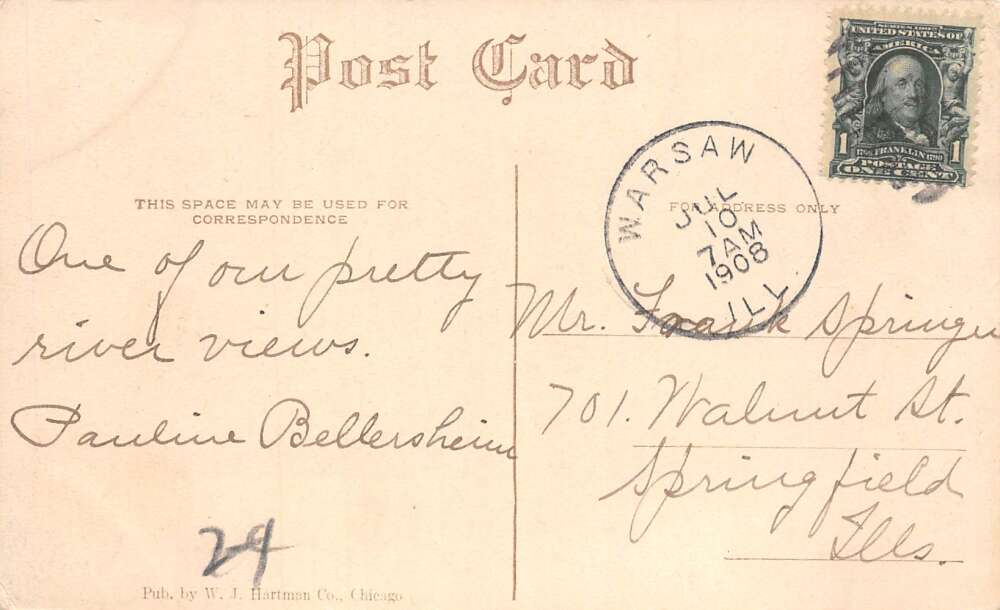 Post Card
SERIES 1902
UNITED STATES OF
AMERICA
1706 FRANKLIN 1790
1 POSTAGE 1
ONE CENT
WARSAW
JUL
10
7AM
1908
ILL
THIS SPACE MAY BE USED FOR
CORRESPONDENCE
FOR ADDRESS ONLY
One of our pretty
river views.
Pauline Bellersheim
Mr. Frank Springer
701. Walnut St.
Springfield
Ills.
24
Pub. by W. J. Hartman Co., Chicago